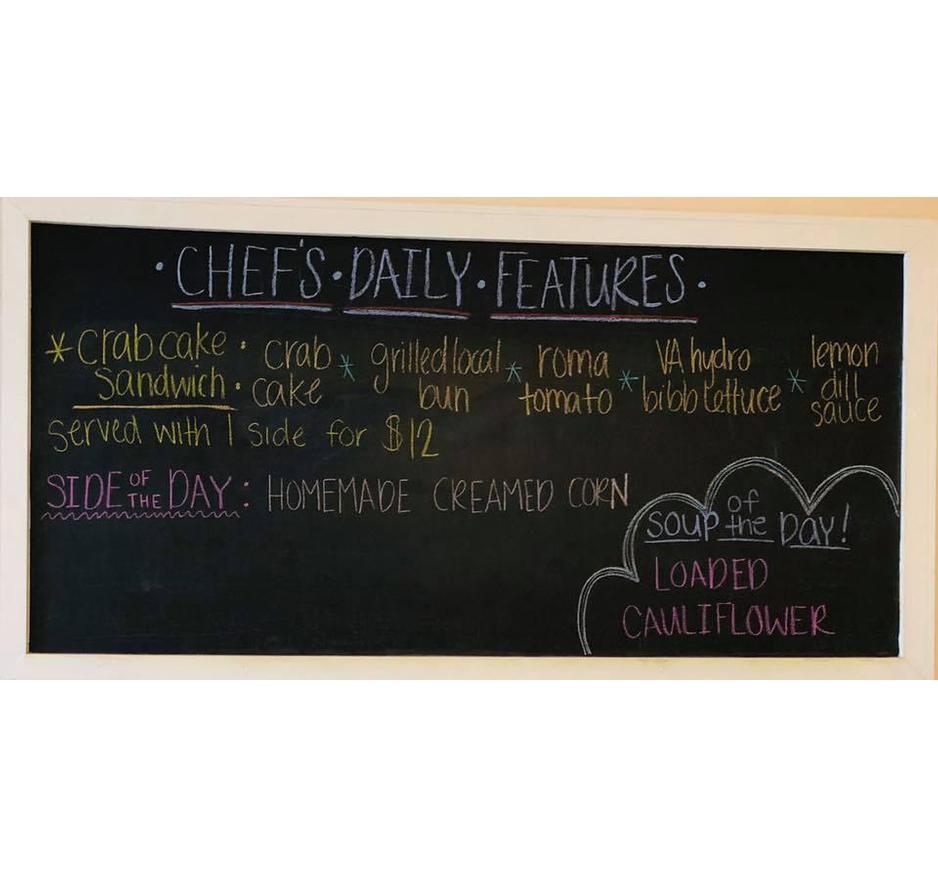 · CHEF'S · DAILY · FEATURES ·
* crab cake sandwich : crab cake * grilled local bun * roma tomato * VA hydro bibb lettuce * lemon dill sauce
served with 1 side for $12
SIDE OF THE DAY: HOMEMADE CREAMED CORN
SOUP of the DAY!
LOADED
CAULIFLOWER